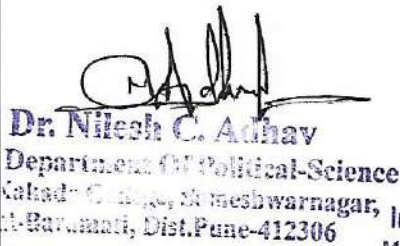 Dr. Nilesh C. Adhav
Department Of Political-Science
Someshwarnagar,
Baramati, Dist.Pune-412306